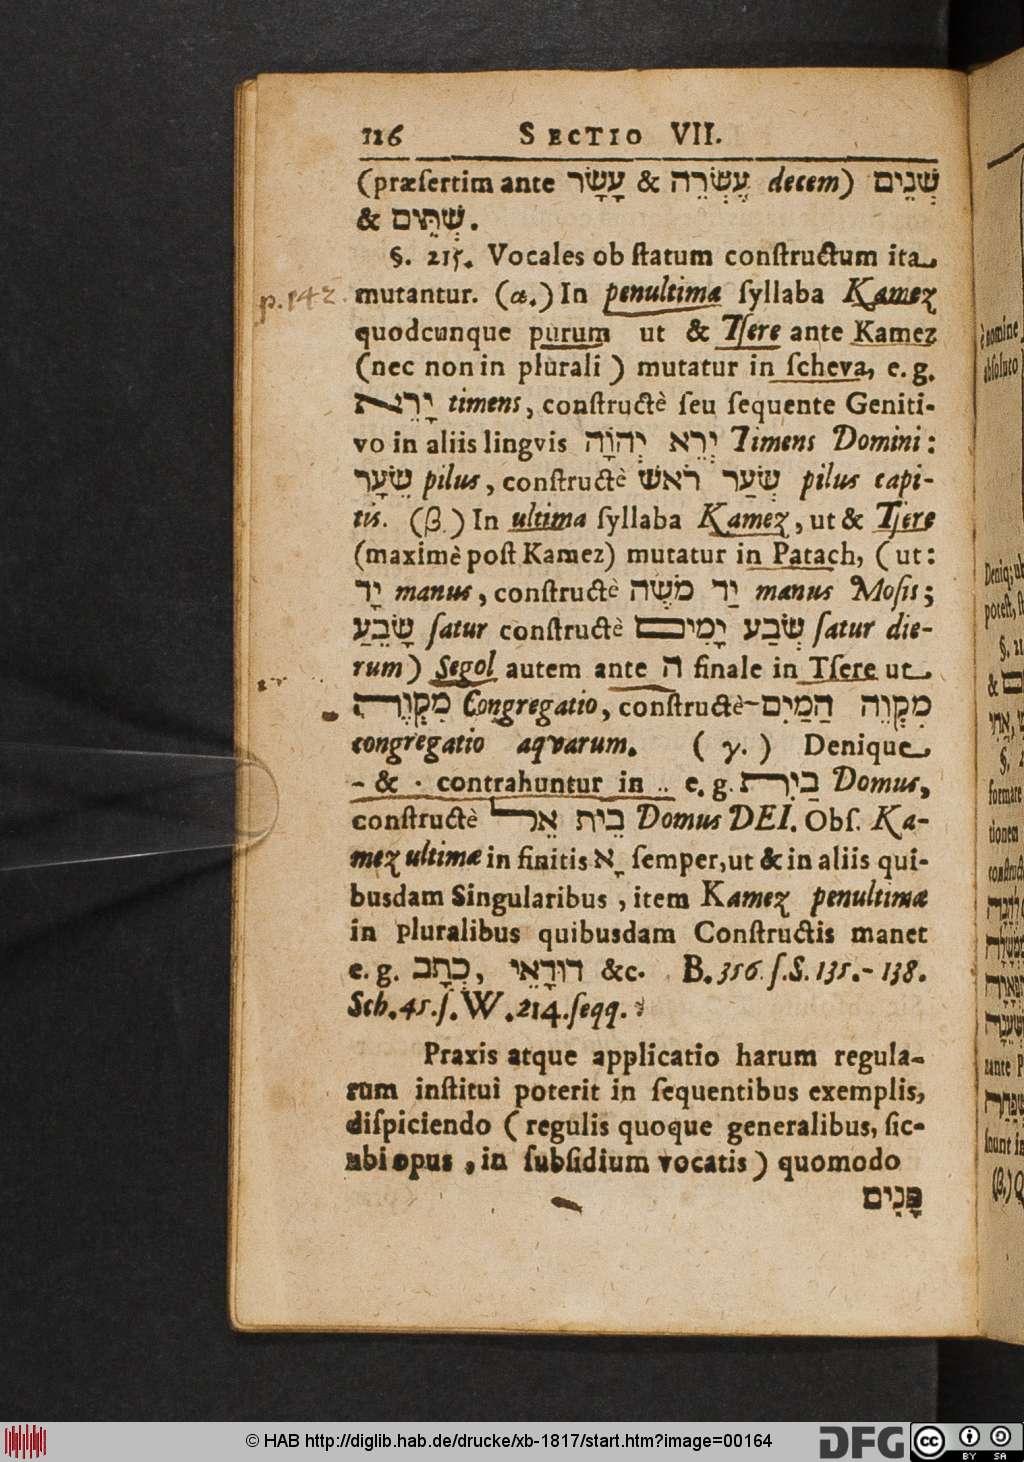 116 SECTIO VII.
(præſertim ante עָשָׂר & עֶשְׂרֵה decem) שְׁנֵים
& שְׁתֵּים.
§. 215. Vocales ob ſtatum conſtructum ita
p. 142. mutantur. (α.) In penultima ſyllaba Kamez
quodcunque purum ut & Tſere ante Kamez
(nec non in plurali) mutatur in ſcheva, e. g.
יָרֵא timens, conſtructè ſeu ſequente Geniti-
vo in aliis lingvis יְרֵא יְהוָֹה Timens Domini:
שֵׂעָר pilus, conſtructè שְׂעַר רֹאשׁ pilus capi-
tis. (β.) In ultima ſyllaba Kamez, ut & Tſere
(maximè poſt Kamez) mutatur in Patach, (ut:
יָד manus, conſtructè יַד מֹשֶׁה manus Moſis;
שָׂבֵעַ ſatur conſtructè שְׂבַע יָמִים ſatur die-
rum) Segol autem ante ה finale in Tſere ut
מִקְוֶה Congregatio, conſtructè מִקְוֵה הַמַּיִם
congregatio aqvarum. (γ.) Denique
- & · contrahuntur in .. e. g. בַּיִת Domus,
conſtructè בֵית אֵל Domus DEI. Obſ. Ka-
mez ultimæ in finitis אָ ſemper, ut & in aliis qui-
busdam Singularibus, item Kamez penultimæ
in pluralibus quibusdam Conſtructis manet
e. g. כְּתָב, דּוּדָאֵי &c. B. 356. ſ. S. 135.-138.
Sch. 45. ſ. W. 214. ſeqq.
Praxis atque applicatio harum regula-
rum inſtitui poterit in ſequentibus exemplis,
diſpiciendo (regulis quoque generalibus, ſic-
ubi opus, in ſubſidium vocatis) quomodo
פָּנִים
è nomine
abſoluto
poteſt,
formare
© HAB http://diglib.hab.de/drucke/xb-1817/start.htm?image=00164
DFG
cc BY SA